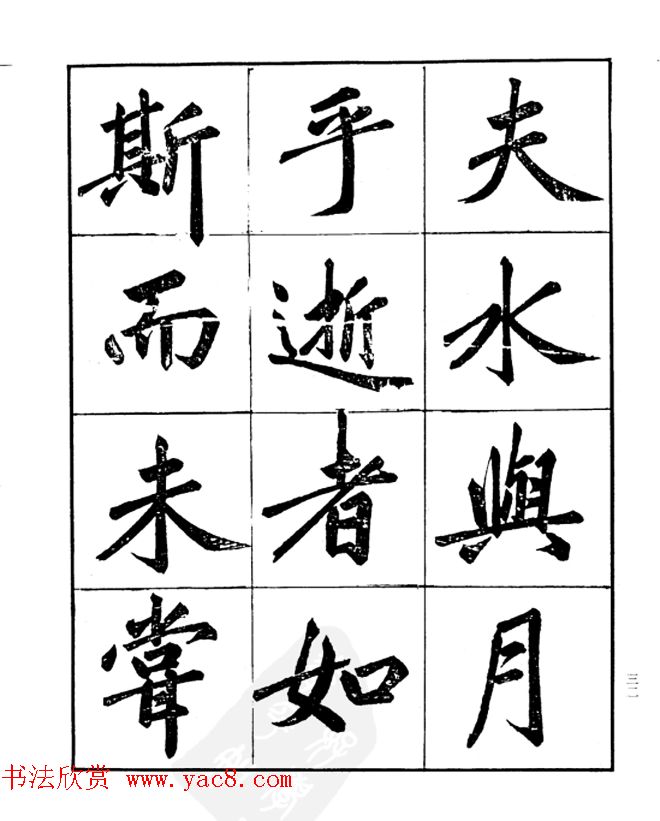 夫水與月
乎逝者如
斯而未嘗
三二
书法欣赏 www.yac8.com